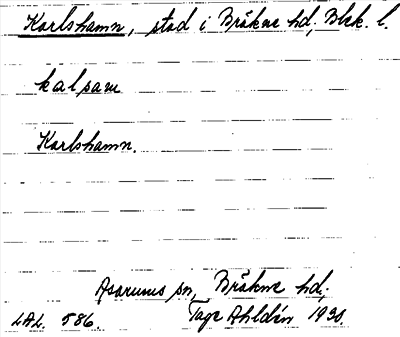 Karlshamn, stad i Bräkne hd, Blek. l.
kalsam
Karlshamn.
Asarums sn, Bräkne hd,
LAL. 586. Tage Ahldén 1930